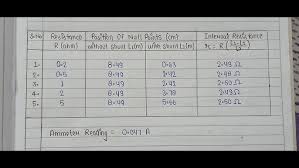 S.No Resistance Position Of Null Points (cm) Internal Resistance
R (ohm) without shunt L1(m) with shunt L2(m)
1. 0.2 8.49 0.63 2.49 Ω
2. 0.5 8.49 1.42 2.48 Ω
3. 1 8.49 2.42 2.50 Ω
4. 2 8.49 3.78 2.49 Ω
5. 5 8.49 5.66 2.50 Ω
Ammeter Reading = 0.047 A